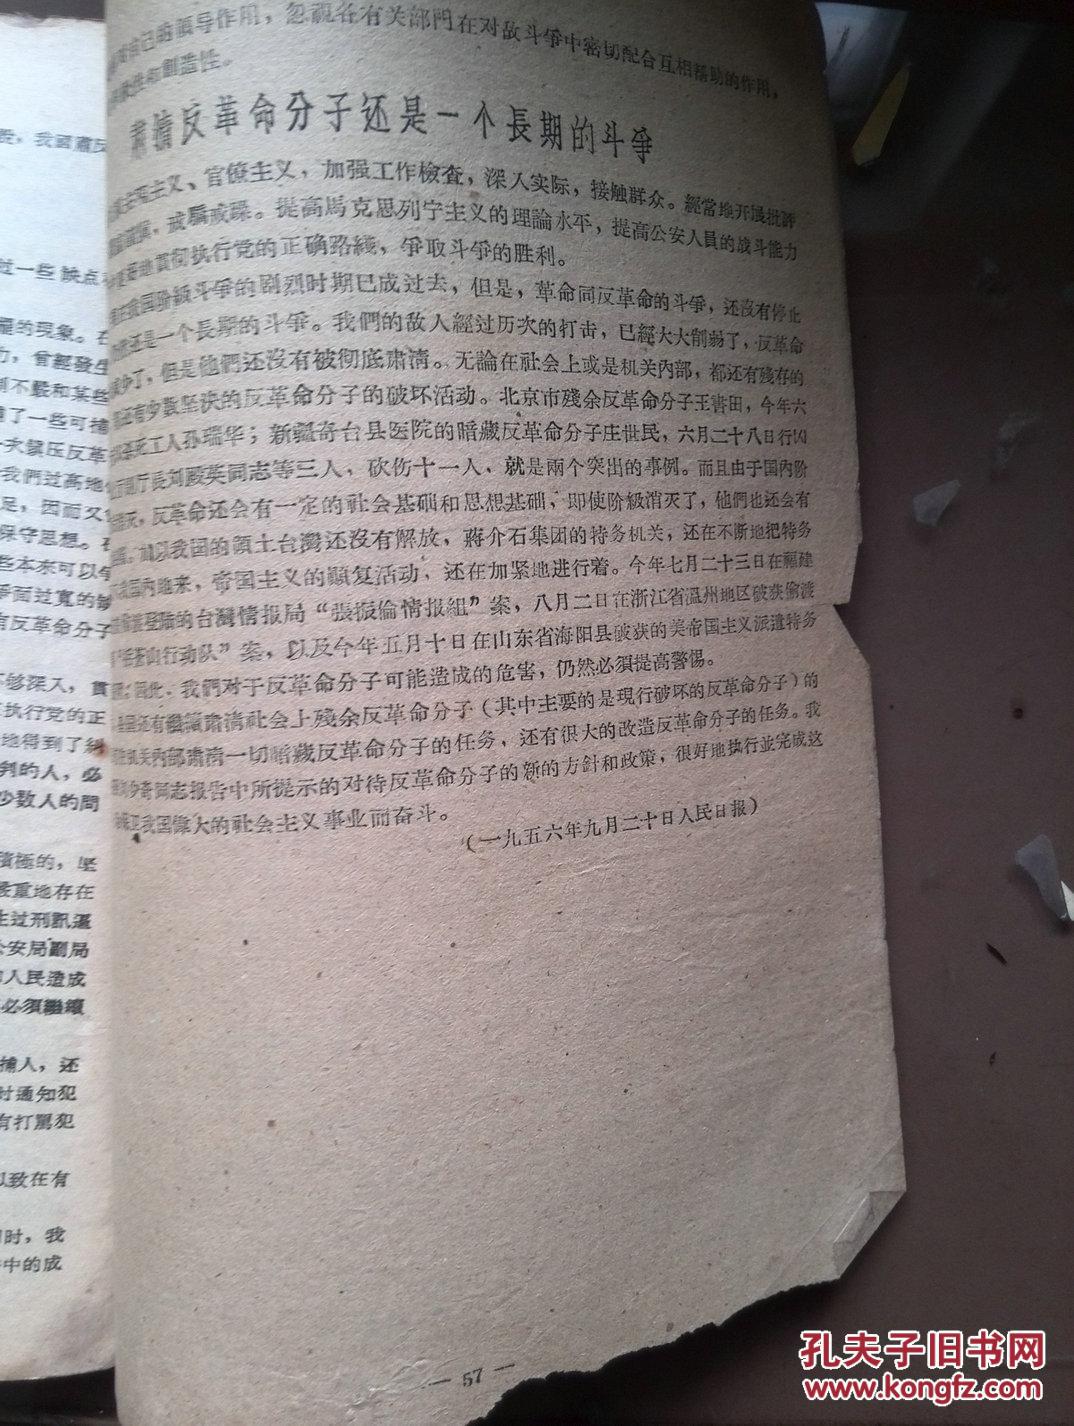 己的領导作用，忽視各有关部門在对敌斗爭中密切配合互相帮助的作用，
性和創造性。
肃清反革命分子还是一个長期的斗爭
主义、官僚主义，加强工作檢查，深入实际，接触群众。經常地开展批評
戒驕戒躁。提高馬克思列宁主义的理論水平，提高公安人員的战斗能力
地貫彻执行党的正确路綫，爭取斗爭的胜利。
在我国阶級斗爭的剧烈时期已成过去，但是，革命同反革命的斗爭，还沒有停止
还是一个長期的斗爭。我們的敌人經过历次的打击，已經大大削弱了，反革命
少了，但是他們还沒有被彻底肃清。无論在社会上或是机关內部，都还有殘存的
还有少数坚决的反革命分子的破坏活动。北京市殘余反革命分子王書田，今年六
死工人孙瑞华；新疆奇台县医院的暗藏反革命分子庄世民，六月二十八日行凶
厅副厅長刘殿英同志等三人，砍伤十一人，就是兩个突出的事例。而且由于国內阶
反革命还会有一定的社会基础和思想基础，即使阶級消灭了，他們也还会有
加以我国的領土台灣还沒有解放，蔣介石集团的特务机关，还在不断地把特务
我国內地来，帝国主义的顚复活动，还在加紧地进行着。今年七月二十三日在福建
登陆的台灣情报局“張振倫情报組”案，八月二日在浙江省温州地区破获偷渡
山行动队”案，以及今年五月十日在山东省海阳县破获的美帝国主义派遣特务
因此，我們对于反革命分子可能造成的危害，仍然必須提高警惕。
还有繼續肃清社会上殘余反革命分子（其中主要的是現行破坏的反革命分子）的
机关內部肃清一切暗藏反革命分子的任务，还有很大的改造反革命分子的任务。我
少奇同志报告中所提示的对待反革命分子的新的方針和政策，很好地执行並完成这
卫我国偉大的社会主义事业而奋斗。
（一九五六年九月二十日人民日报）
— 57 —
我國肅反
过一些缺点
的現象。在
力，曾經發生
不嚴和某些
了一些可捕
大鎭压反革
我們过高地
足，因而又
保守思想。在
些本來可以
面过寬的
有反革命分子
够深入，貫
执行党的正
地得到了
判的人，必
少数人的問
積極的，坚
嚴重地存在
生过刑訊逼
公安局副局
人民造成
必須繼續
捕人，还
討通知犯
有打駡犯
以致在有
同时，我
中的成
孔夫子旧书网
www.kongfz.com